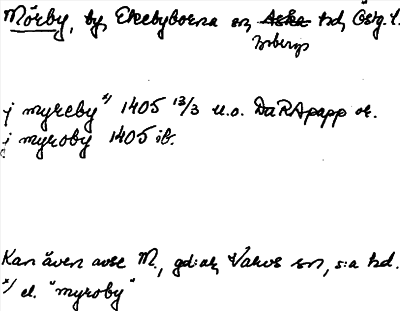 Mörby, by, Ekebyborna sn, Aska hd, Östg. l.
Bobergs
j myreby x) 1405 13/3 u.o. DaRApapp or.
j myroby 1405 ib.
Kan även avse M., gd:ar, Varvs sn, s:a hd.
x) el. "myroby"